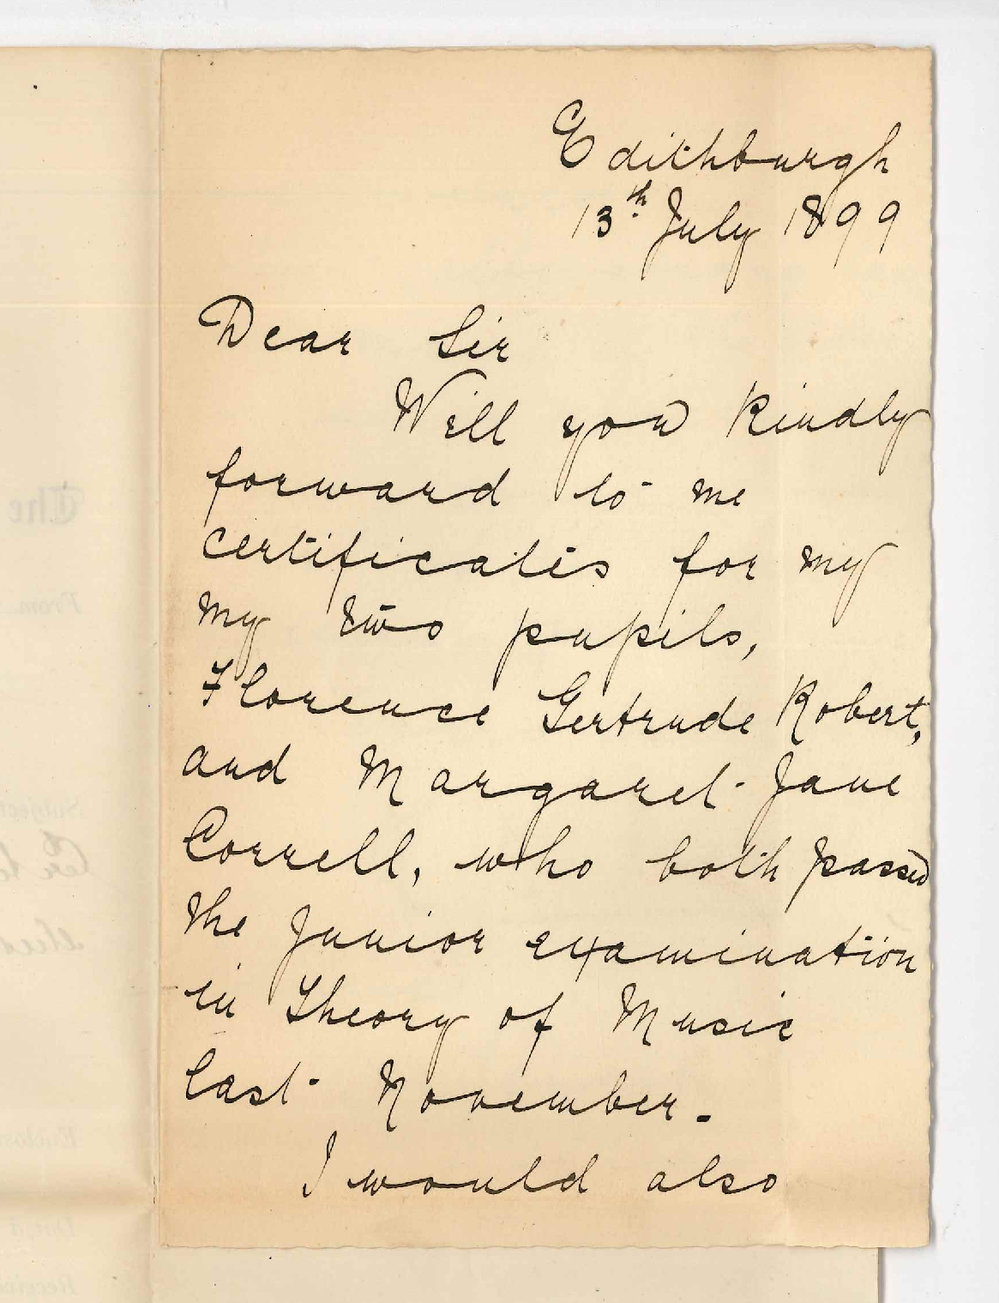 Edithburgh
13th July 1899
Dear Sir
Will you kindly
forward to me
certificates for my
my two pupils,
Florence Gertrude Robert,
and Margaret Jane
Correll, who both passed
the Junior examination
in Theory of Music
last November.
I would also